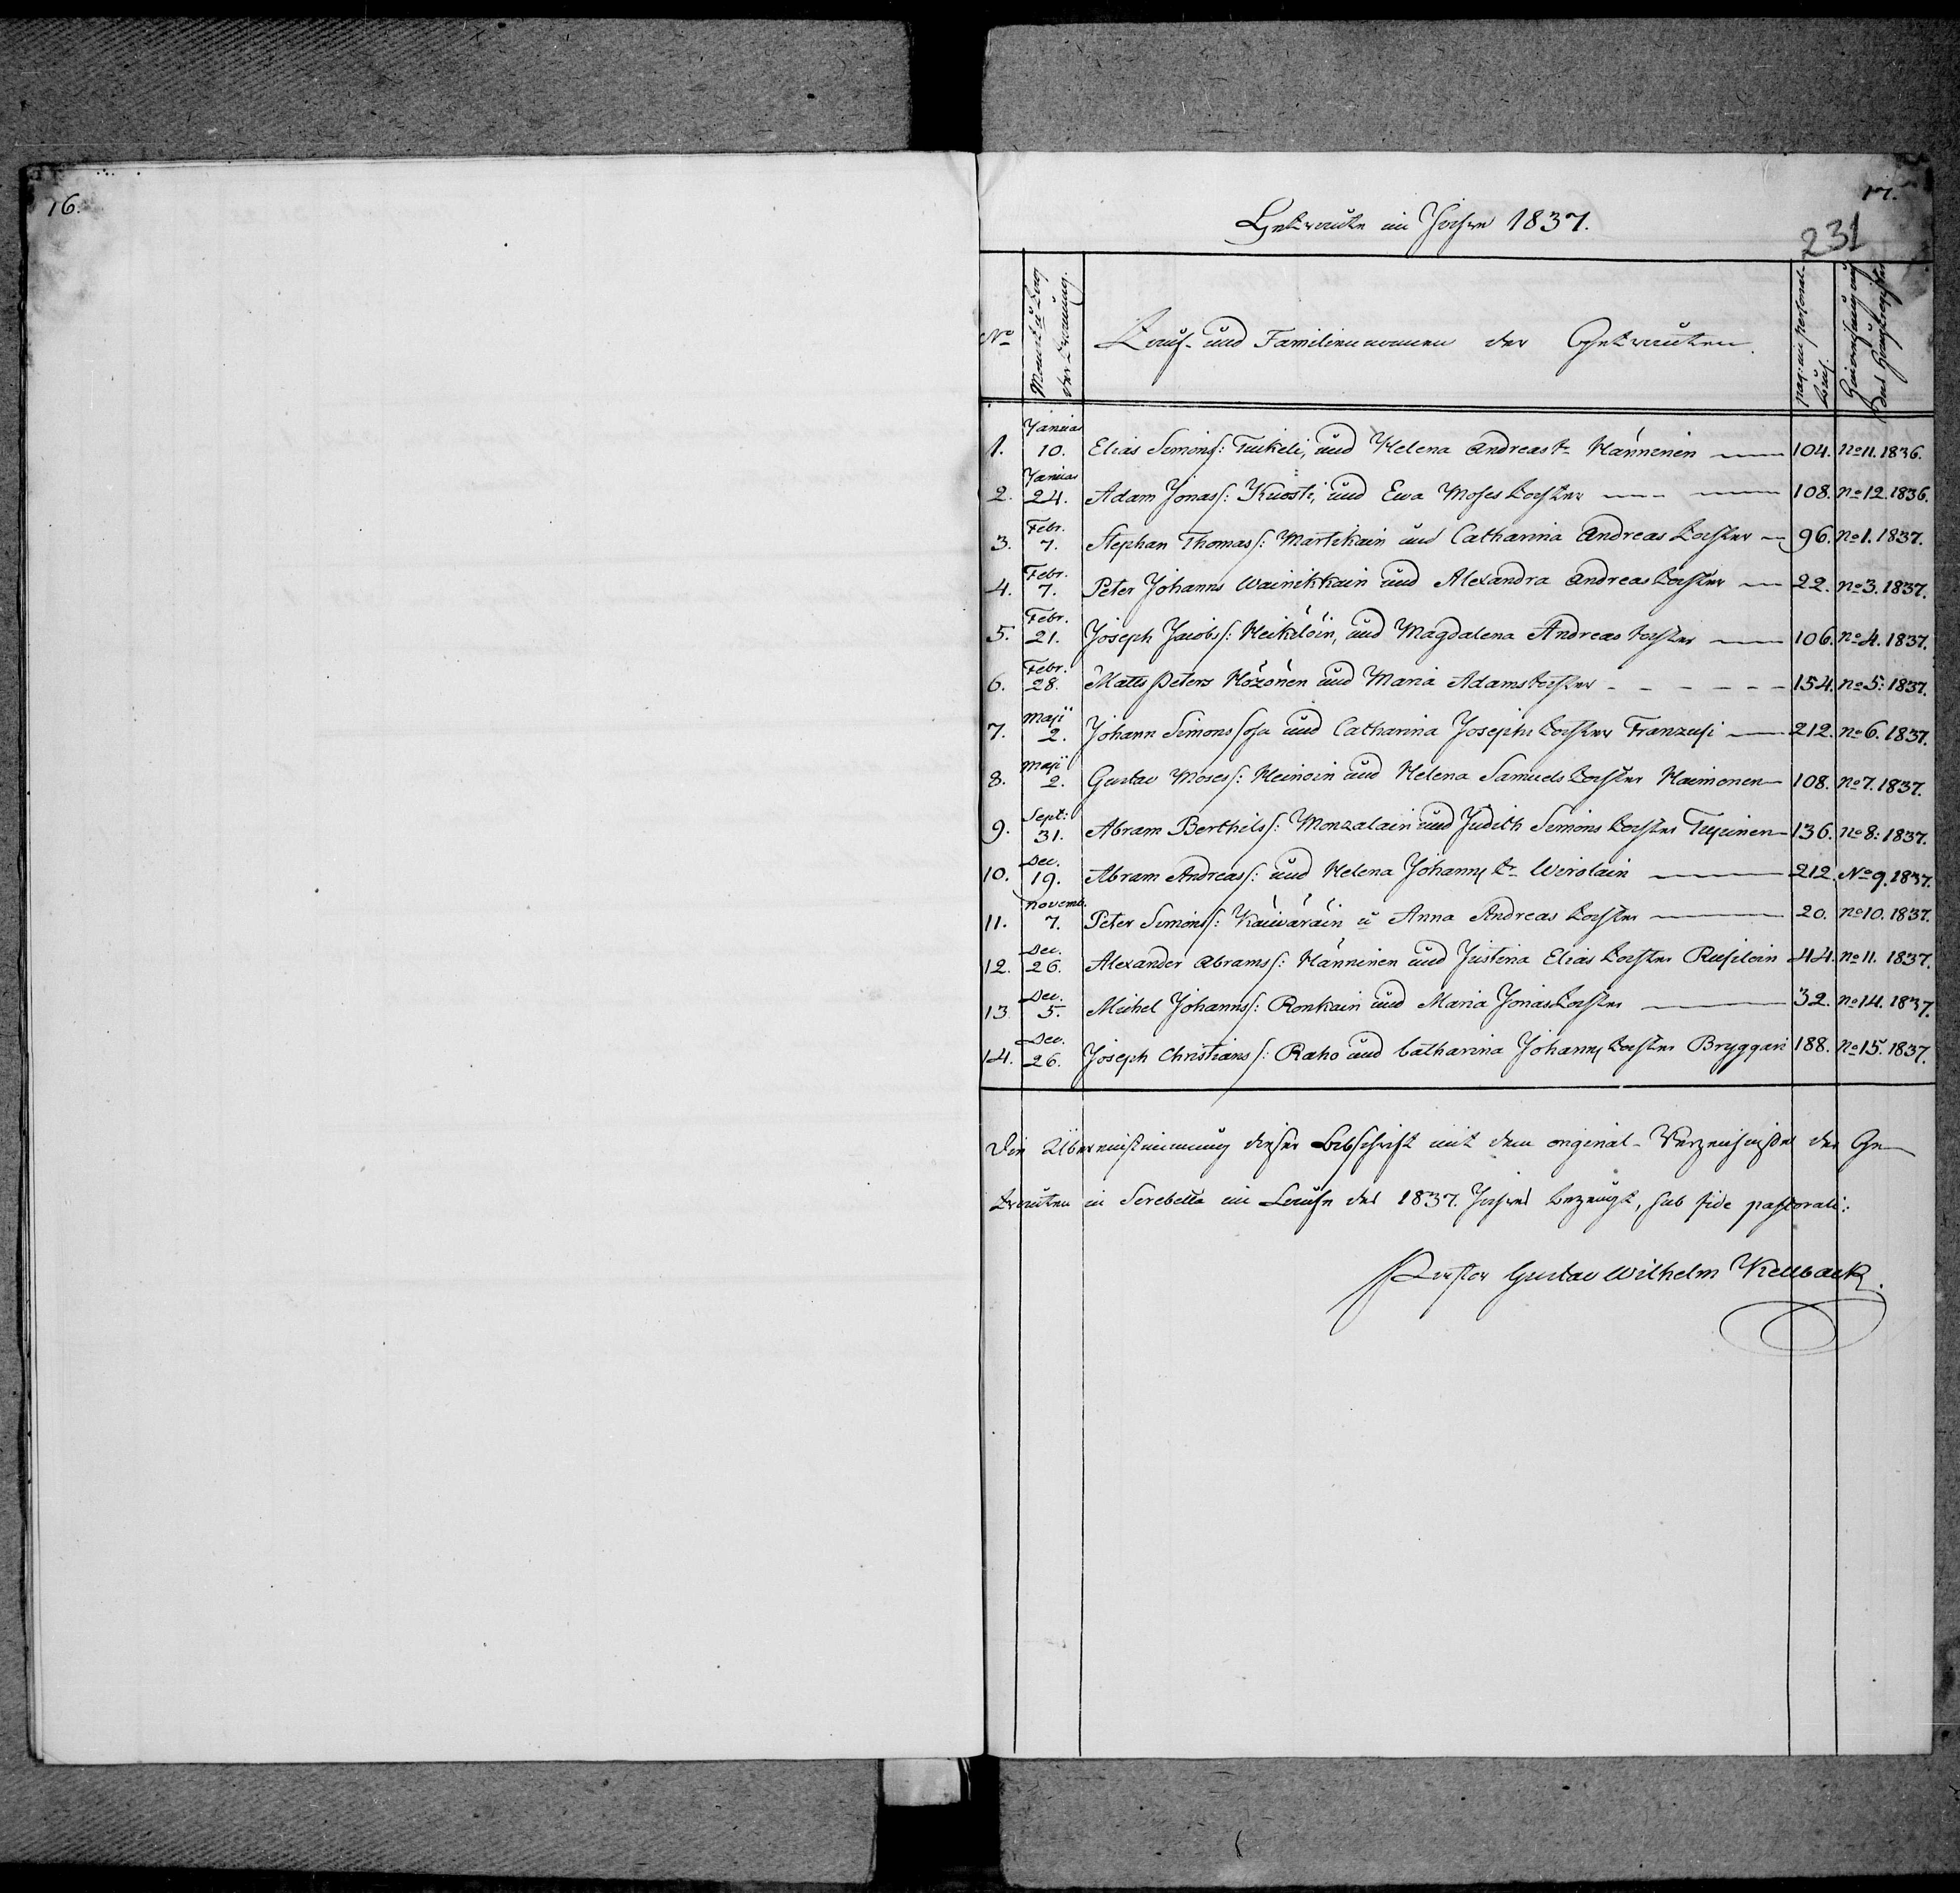 16.
17.
231
Getraute im Jahre 1837.
No
Monat u Tag der Trauung.
Tauf- und Familiennamen der Getrauten.
pag: im Personal-Buch.
Hinweisung auf das
1. Januar 10. Elias Simons: Tuikeli, und Helena Andreas tr Hänninen 104. No 11. 1836.
2. Januar 24. Adam Jonas s: Kuosti, und Ewa Moses Tochter 108. No 12. 1836.
3. Febr. 7. Stephan Thomas s: Martikain und Catharina Andreas Tochter 96. No 1. 1837.
4. Febr. 7. Peter Johanns Wainikkain und Alexandra Andreas Tochter 22. No 3. 1837.
5. Febr. 21. Joseph Jacobs s: Heikilöin, und Magdalena Andreas Tochter 106. No 4. 1837.
6. Febr. 28. Matts Peters Hözönen und Maria Adams Tochter 154. No 5: 1837.
7. Maji 2. Johann Simons Sohn und Catharina Josephs Tochter Franzusi 212. No 6. 1837.
8. Maji 2. Gustav Moses s: Heinoin und Helena Samuels Tochter Haimonen 108. No 7. 1837.
9. Sept: 31. Abram Berthils s: Monzalain und Judith Simons Tochter Tupinen 136. No 8: 1837.
10. Dec. 19. Abram Andreas s: und Helena Johanns tr Wirolain 212. No 9. 1837.
11. Novemb. 7. Peter Simons s: Käiwäräin u Anna Andreas Tochter 20. No 10. 1837.
12. Dec. 26. Alexander Abrams s: Hänninen und Justina Elias Tochter Rusiloin 44. No 11. 1837.
13 Dec. 5. Michel Johanns s: Ronkain und Maria Jonas Tochter 32. No 14. 1837.
14. Dec. 26. Joseph Christians s: Raho und Catharina Johanns Tochter Bryggari 188. No 15. 1837.
Die Übereinstimmung dieser Abschrift mit dem original-Verzeichnisse der Ge-
trauten in Serebetta im Laufe des 1837. Jahres bezeugt, sub fide pastorali:
Pastor Gustav Wilhelm Kellback.